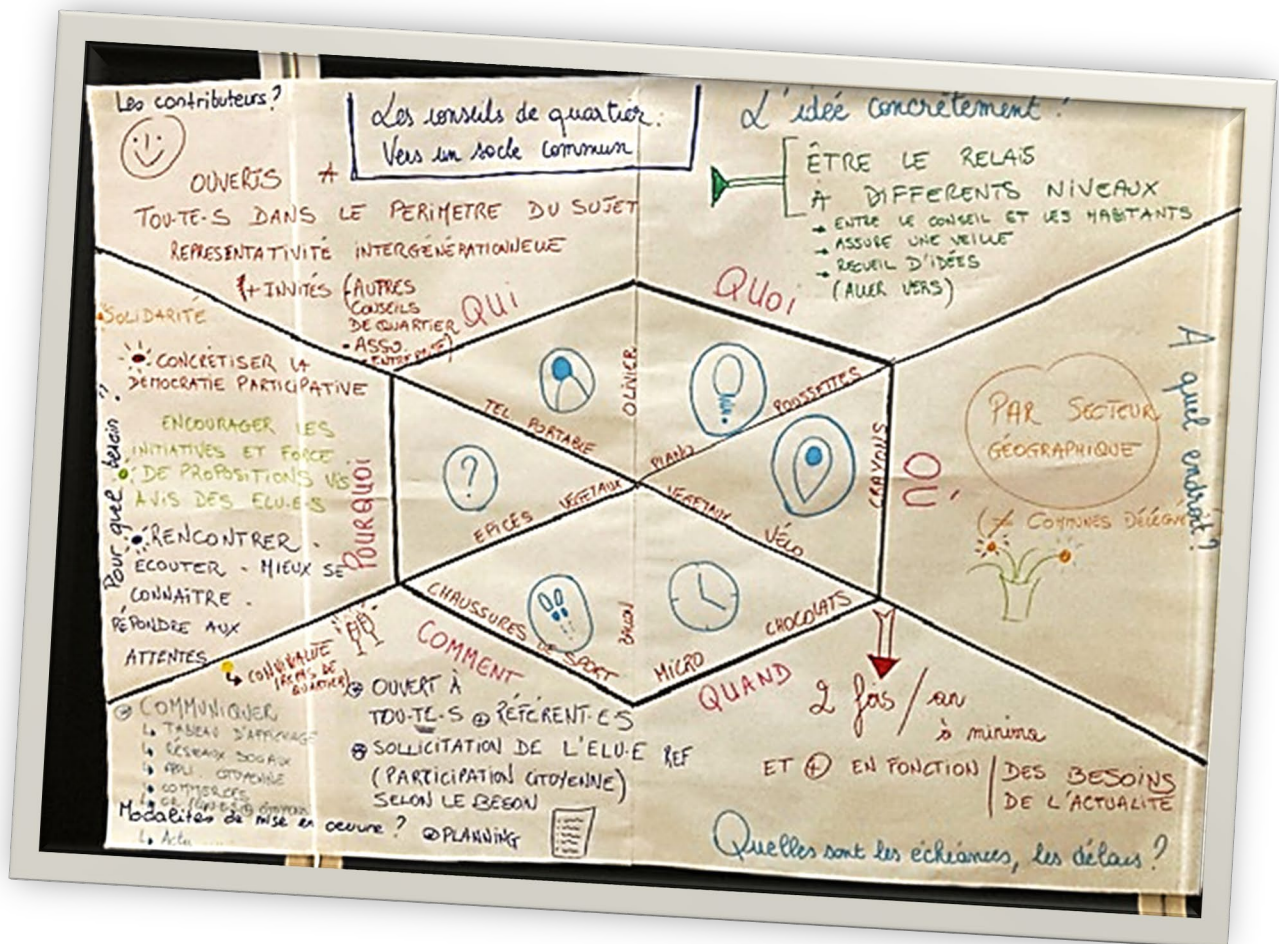 Les contributeurs ?
Les conseils de quartier :
Vers un socle commun
OUVERTS A
TOU-TE-S DANS LE PERIMETRE DU SUJET
REPRESENTATIVITÉ INTERGÉNÉRATIONNELLE
+ INVITÉS (AUTRES
CONSEILS
DE QUARTIER
- ASSO.
QUI
L'idée concrètement !
ÊTRE LE RELAIS
À DIFFERENTS NIVEAUX
→ ENTRE LE CONSEIL ET LES HABITANTS
→ ASSURE UNE VEILLE
→ RECUEIL D'IDÉES
(ALLER VERS)
QUOI
SOLIDARITÉ
CONCRÉTISER LA
DÉMOCRATIE PARTICIPATIVE
ENCOURAGER LES
INITIATIVES ET FORCE
DE PROPOSITIONS VIS
AVIS DES ELU-E-S
RENCONTRER -
ECOUTER - MIEUX SE
CONNAÎTRE -
RÉPONDRE AUX
ATTENTES
Pour quel besoin ?
POURQUOI
TEL PORTABLE
OLIVIER
POUSSETTES
PIANO
CRAYONS
?
EPICES
VÉGETAUX
VEGETAUX
VÉLO
CHAUSSURES
DE SPORT
BALLON
MICRO
CHOCOLATS
OÙ
PAR SECTEUR
GÉOGRAPHIQUE
(≠ COMMUNES
A quel endroit ?
(REPAS DE
QUARTIER)
COMMENT
COMMUNIQUER
↳ TABLEAU D'AFFICHAGE
↳ RÉSEAUX SOCIAUX
↳ APPLI. CITOYENNE
↳ COMMERCES
↳ Actu
Modalités de mise en oeuvre ?
OUVERT À
TOU-TE-S ⊕ RÉFÉRENT-E-S
SOLLICITATION DE L'ELU-E REF
(PARTICIPATION CITOYENNE)
SELON LE BESOIN
PLANNING
QUAND
2 fois / an
à minima
ET ⊕ EN FONCTION DES BESOINS
DE L'ACTUALITÉ
Quelles sont les échéances, les délais ?